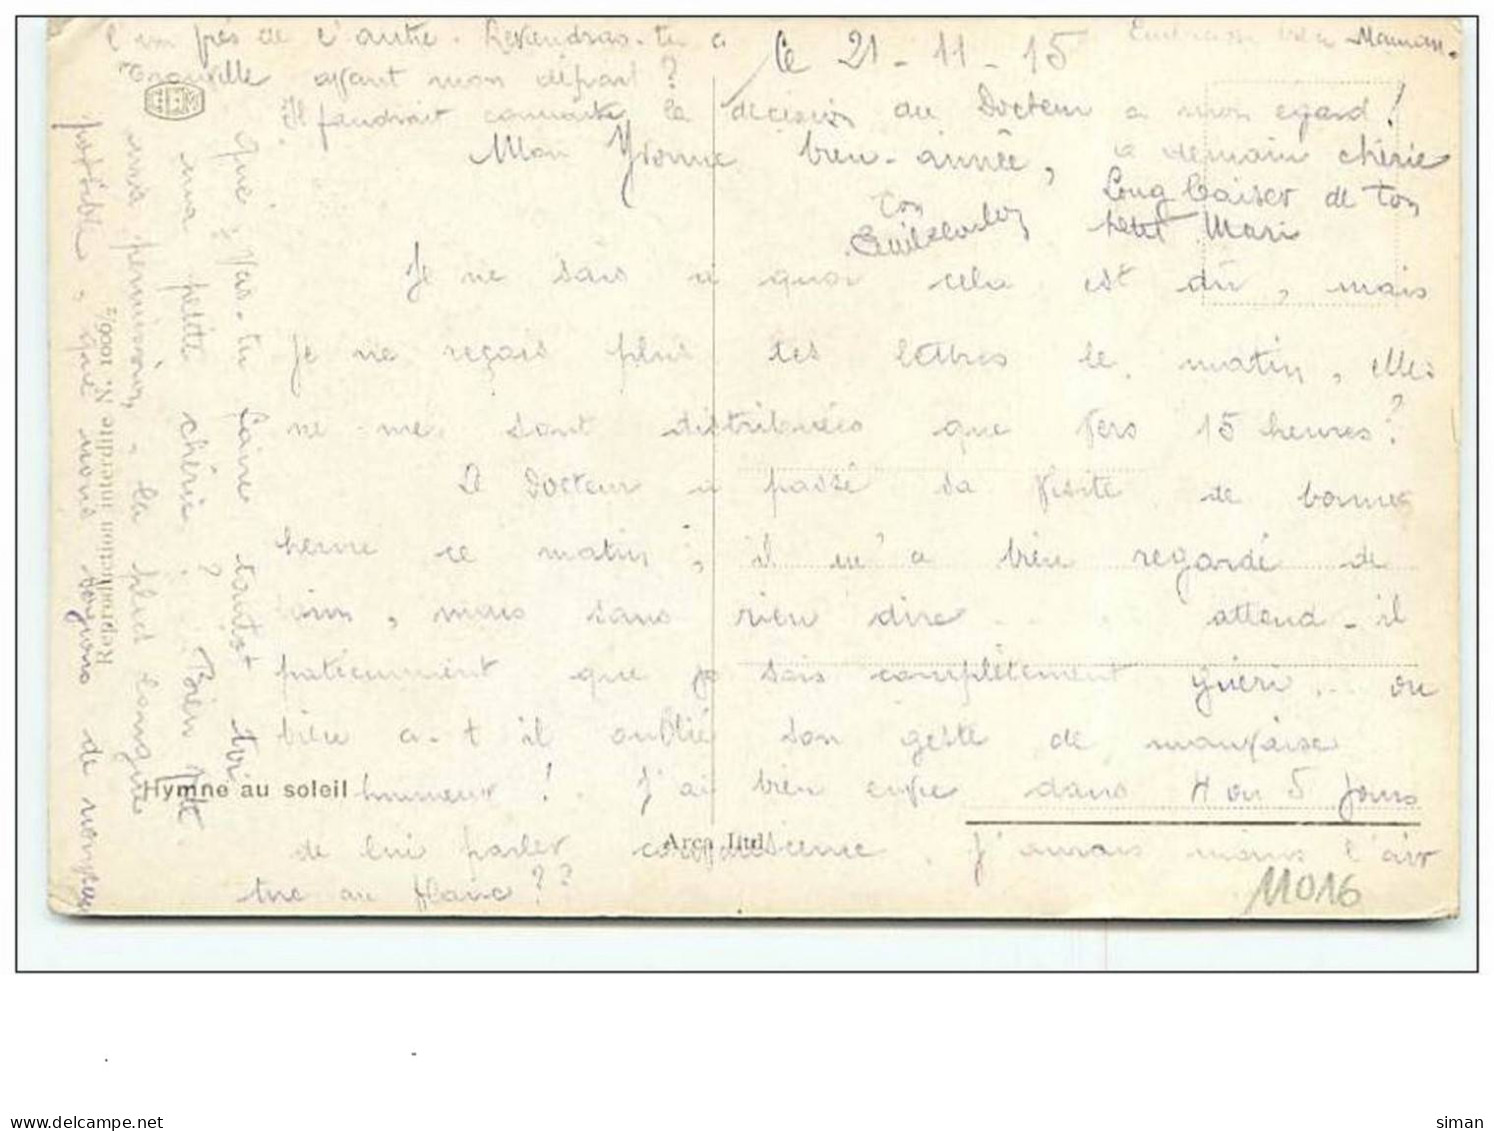 l'un près de l'autre. Reviendras-tu à
Trouville avant mon départ ?
Il faudrait connaître la décision du Docteur à mon egard !
le 21-11-15
Embrasse Maman.
Mon Yvonne bien-aimée,
à demain chérie
Long baiser de ton
petit Mari
Ton
Je ne sais à quoi cela est dû, mais
je ne reçois plus tes lettres le matin, elles
ne me sont distribuées que vers 15 heures ?
Le Docteur a passé sa visite de bonne
heure ce matin ; il m'a bien regardé de
loin, mais sans rien dire .... attend-il
patiemment que je sois complètement guéri... ou
bien a-t-il oublié son geste de mauvaise
humeur ! J'ai bien envie dans 4 ou 5 jours
de lui parler convalescence. J'aurais moins l'air
tire au flanc ??
que ; Vas-tu faire toutst toi
ma petite chérie ? Bien vite
ma permission, la plus longue
possible, que nous soyons de nouveau
Hymne au soleil
Arca
Reproduction interdite N. 1009/2
11016
siman
delcampe.net